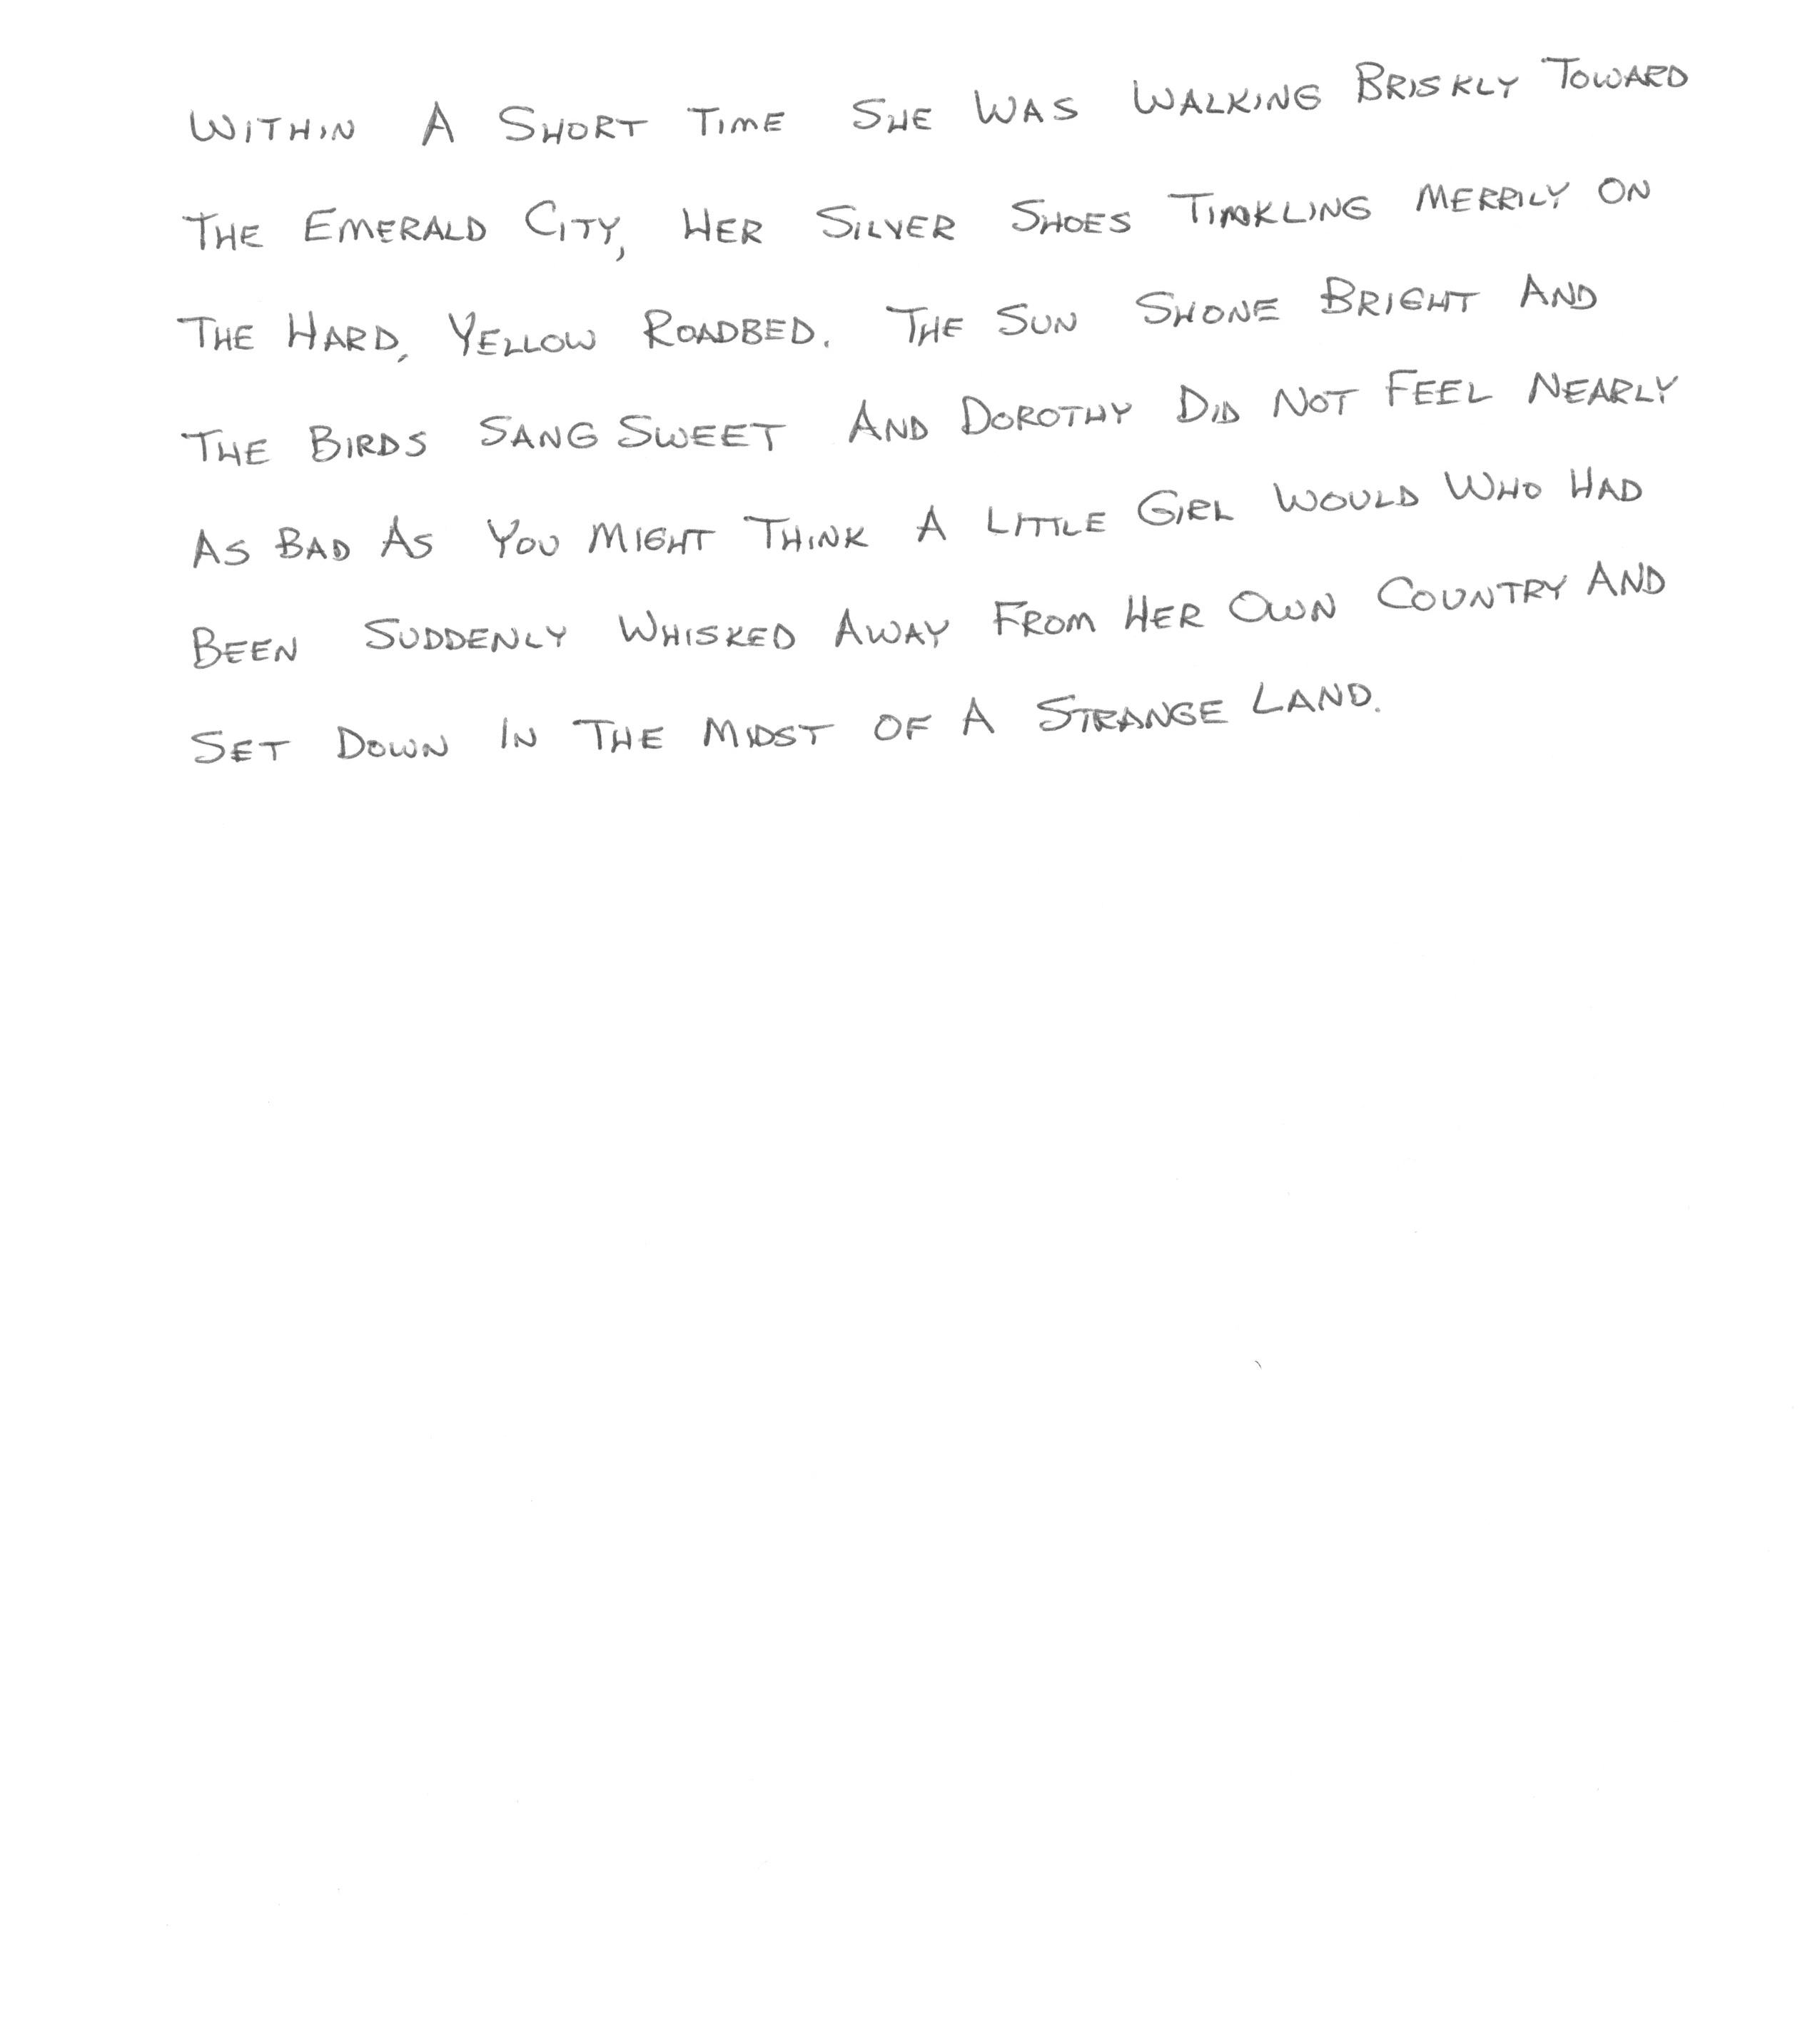 WITHIN A SHORT TIME SHE WAS WALKING BRISKLY TOWARD
THE EMERALD CITY, HER SILVER SHOES TINKLING MERRILY ON
THE HARD, YELLOW ROADBED. THE SUN SHONE BRIGHT AND
THE BIRDS SANG SWEET AND DOROTHY DID NOT FEEL NEARLY
AS BAD AS YOU MIGHT THINK A LITTLE GIRL WOULD WHO HAD
BEEN SUDDENLY WHISKED AWAY FROM HER OWN COUNTRY AND
SET DOWN IN THE MIDST OF A STRANGE LAND.